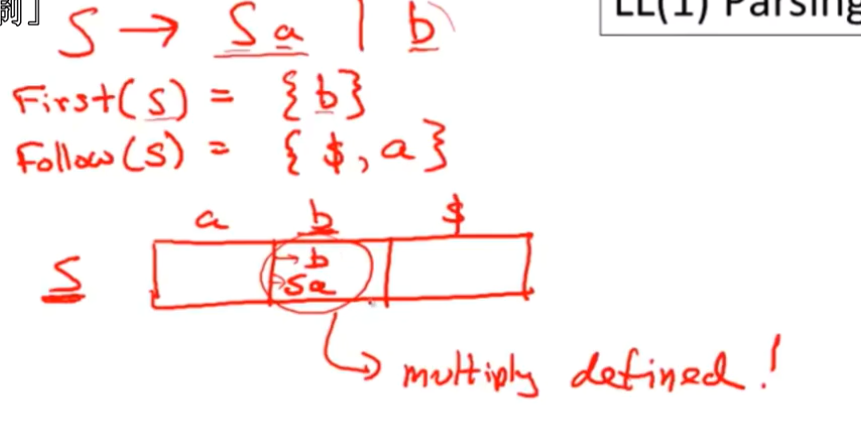 列」
LL(1) Parsing
S → Sa | b
First(S) = {b}
Follow(S) = {$, a}
a b $
S → b
→ Sa
multiply defined!